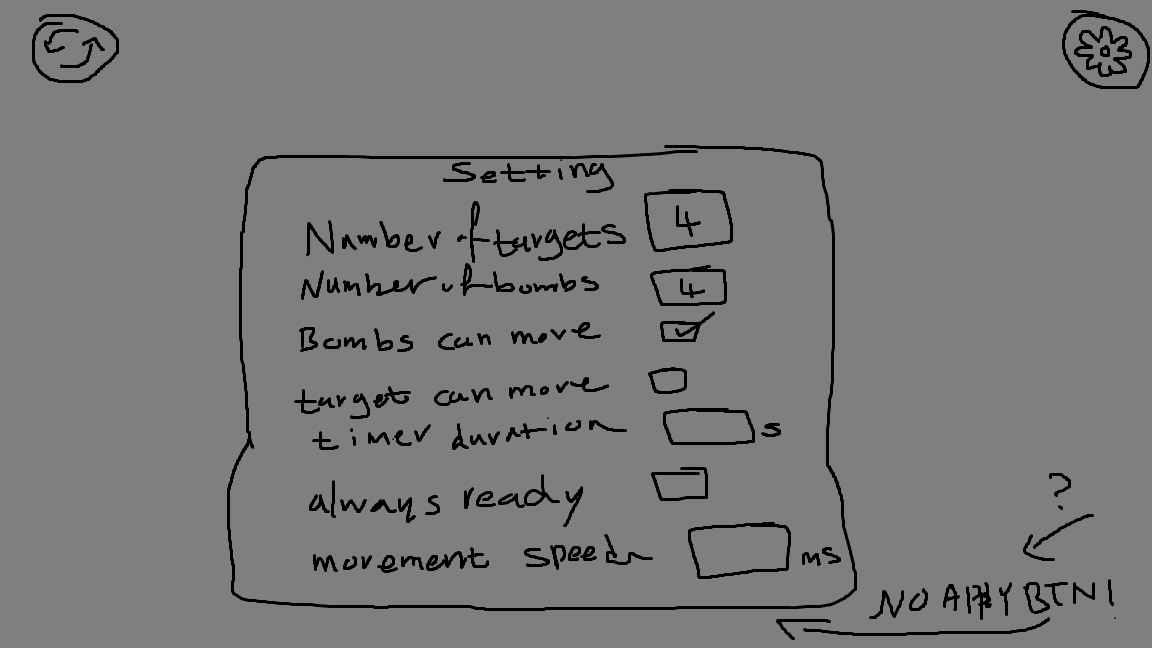 Setting
Number of targets 4
Number of bombs 4
Bombs can move
target can move
timer duration s
always ready
movement speed ms
?
NO APPLY BTN!